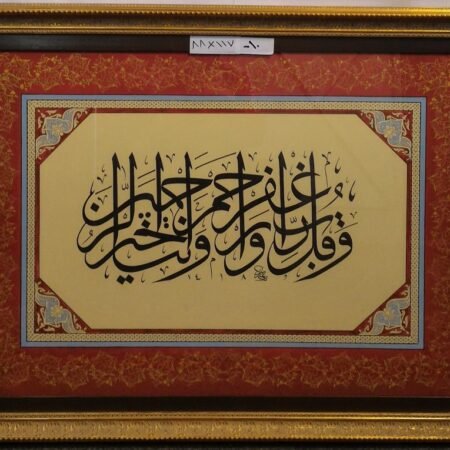 ٨٨×١١٧
وقل رب اغفر وارحم وانت خير الراحمين
١٤١٨